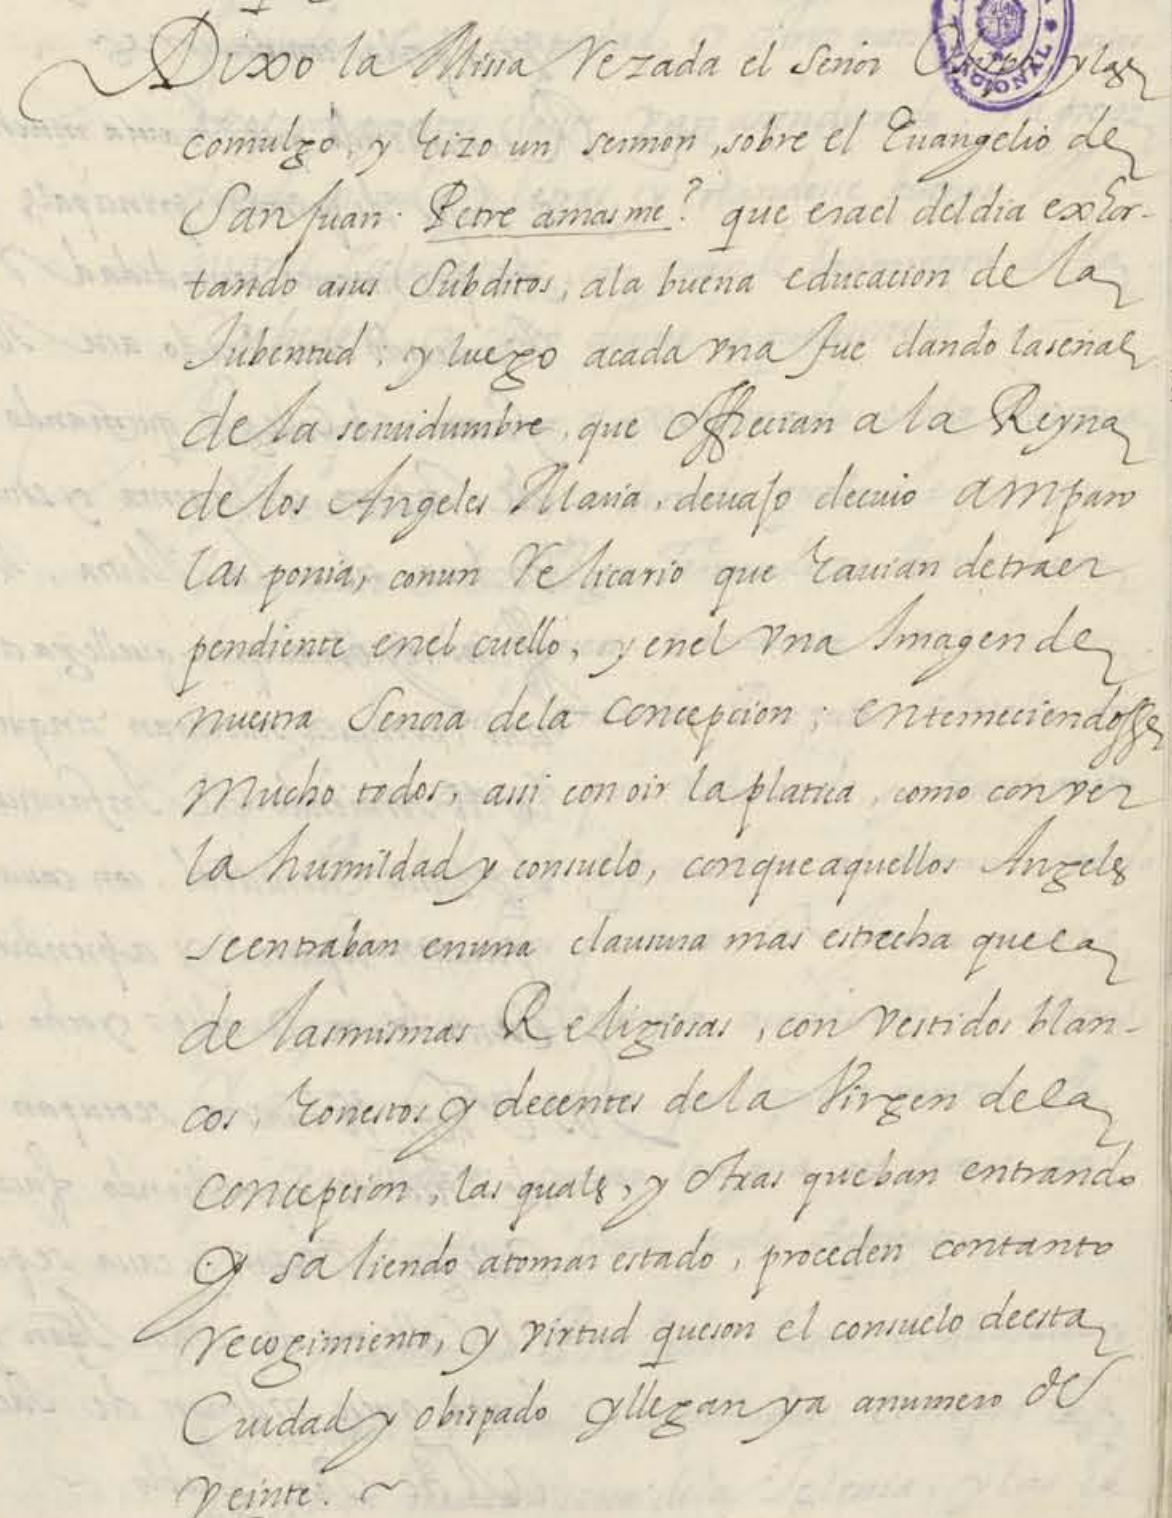 Dixo la Missa Rezada el Señor Obispo ylas
comulgò, y hizo un sermon, sobre el Euangelio de
San Juan. Petre amas me? que erael deldia exhor-
tando asus Subditos, ala buena educacion de la
Jubentud; y luego acada vna fue dando laseñal
de la seruidumbre, que offrecian a la Reyna
de los Angeles Maria, deuajo decuio amparo
las ponia, conun Relicario que hauian detraer
pendiente enel cuello, y enel vna Imagen de
nuestra Señora dela Concepcion; enterneciendosse
Mucho todos, assi con oir la platica, como con ver
la humildad y consuelo, conqueaquellos Angeles
seentraban enuna clausura mas estrecha quela
de lasmismas Religiosas, con vestidos blan-
cos, honestos y decentes de la Virgen dela
Concepcion, las quales, y otras queban entrando
y saliendo atomar estado, proceden contanto
recogimiento, y virtud queson el consuelo deesta
Ciudad y obispado yllegan ya anumero de
veinte.
NACIONAL